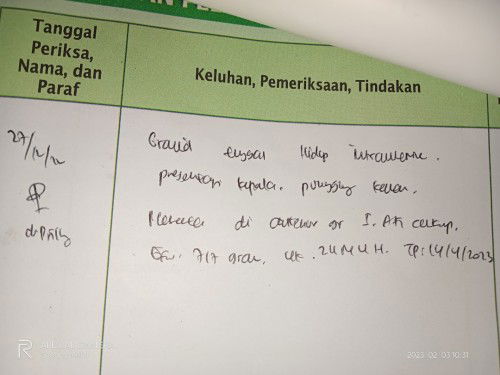 Tanggal
Periksa,
Nama, dan
Paraf
Keluhan, Pemeriksaan, Tindakan
27/12/22
Gravid tunggal hidup intrauterine.
presentasi kepala. punggung kanan.
Plasenta di corpus gr I. AK cukup.
EFW. 717 gram. UK. 24M4H. TP: 14/4/2023
2023.02.03 10:31